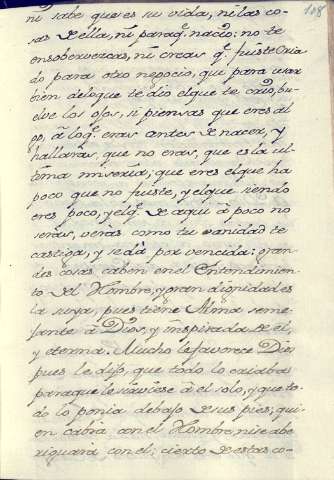 108
ni sabe que es su vida, ni las co-
sas de ella, ni paraq̃. nacio: no te
ensoberverzas, ni creas q̃. fuiste cria
do para otro negocio, que para usar
bien de lo que te dio el que te crio, bu-
elve los ojos, si piensas que eres al
go, à loq̃. eras antes de nacer, y
hallarás, que no eras, que es la ul
tima miseria; que eres el que ha
poco que no fuiste, y el que siendo
eres poco, y elq̃. de aqui à poco no
serás, verás como tu vanidad te
castiga, y se dà por vencida: gran
des cosas caben en el Entendimien
to del Hombre, y gran dignidad es
la suya, pues tiene Alma seme
jante à Dios, y inspirada de el,
y eterna. Mucho le favorece Dios
pues le dijo, que todo lo criaba
paraque le sirviese à el solo, y que to
do lo ponia debajo de sus pies; qui-
en cabria con el Hombre, ni se abe
riguaria con el; cierto de estas co-